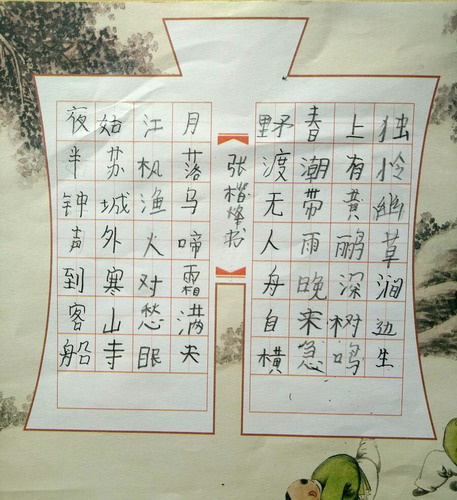 独怜幽草涧边生
上有黄鹂深树鸣
春潮带雨晚来急
野渡无人舟自横
张楷烽书
月落乌啼霜满天
江枫渔火对愁眠
姑苏城外寒山寺
夜半钟声到客船